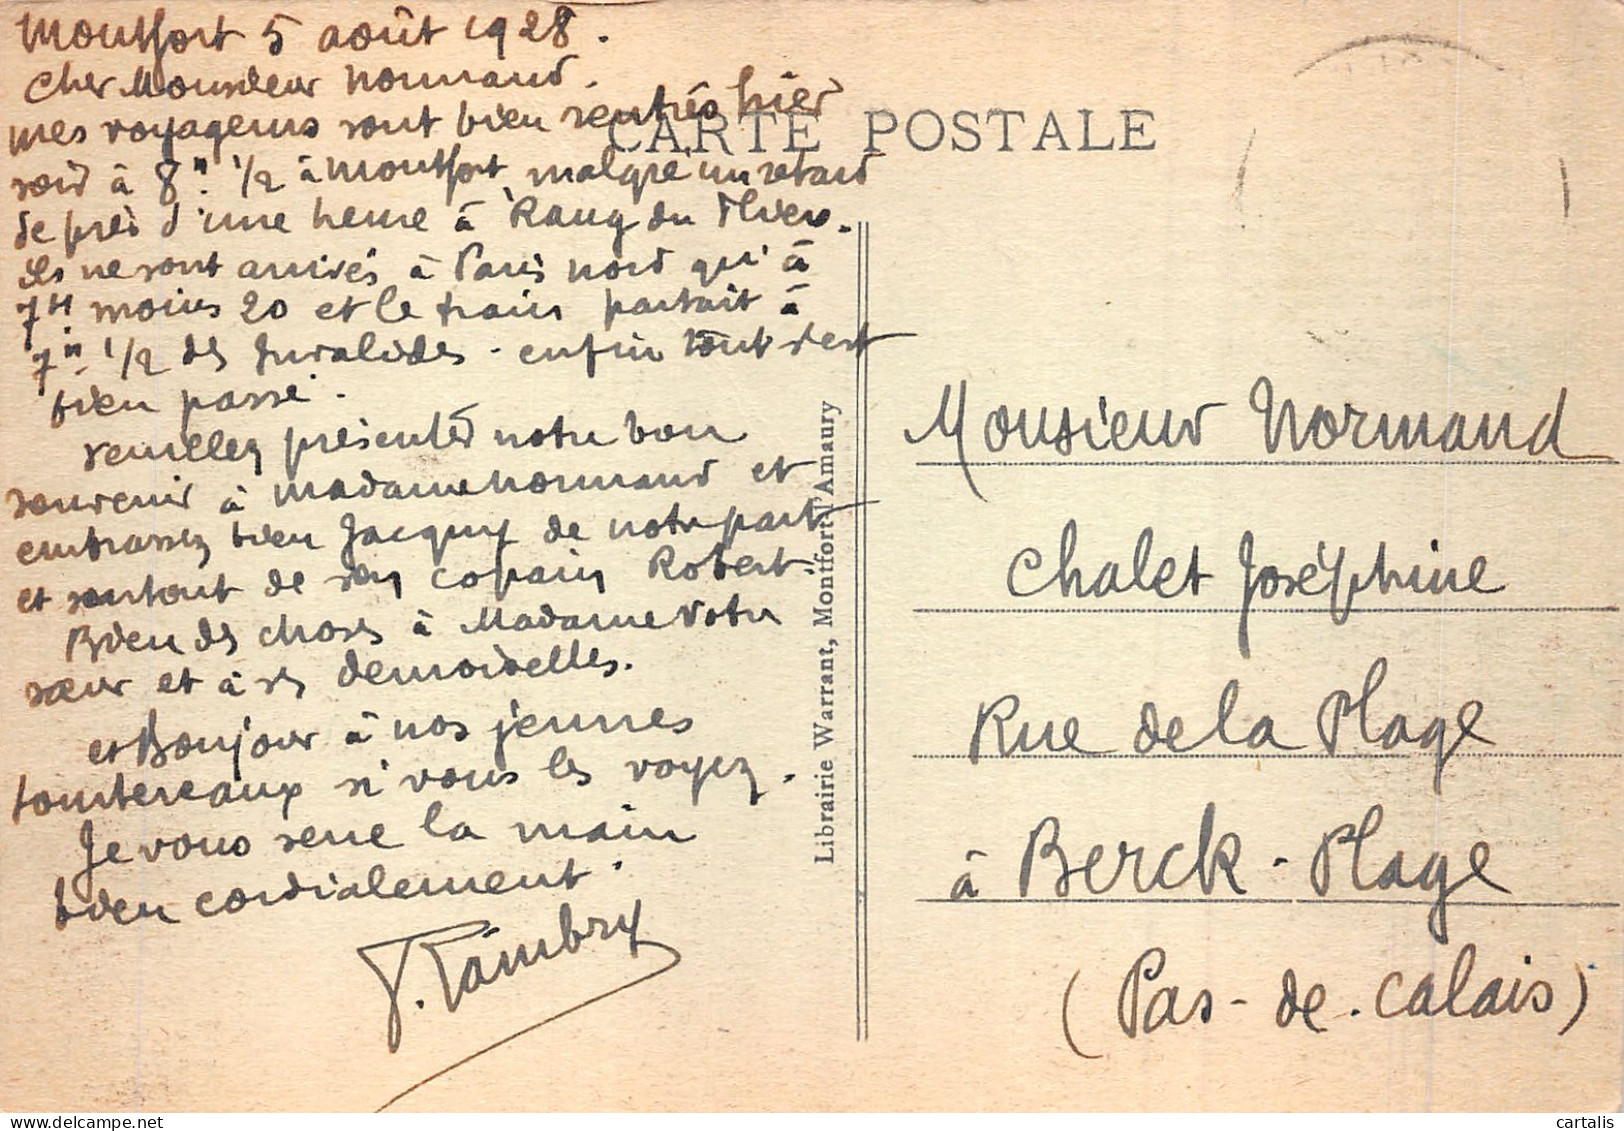 Montfort 5 août 1928.
Cher Monsieur Normand.
mes voyageurs sont bien rentrés hier
soir à 8H. 1/2 à Montfort malgré un retard
de près d'une heure à Rang du Fliers.
ils ne sont arrivés à Paris nord qu'à
7H moins 20 et le train partait à
7H 1/2 des Invalides. enfin tout s'est
bien passé.
veuillez présenter notre bon
souvenir à Madame Normand et
embrassez bien Jacquy de notre part
et surtout de son copain Robert.
Bien des choses à Madame votre
sœur et à ses demoiselles.
et Bonjour à nos jeunes
tourtereaux si vous les voyez.
Je vous serre la main
bien cordialement.
CARTE POSTALE
Librairie Warrant, Montfort-l'Amaury
Monsieur Normand
Chalet Joséphine
Rue de la Plage
à Berck-Plage
(Pas-de-Calais)
delcampe.net
cartalis